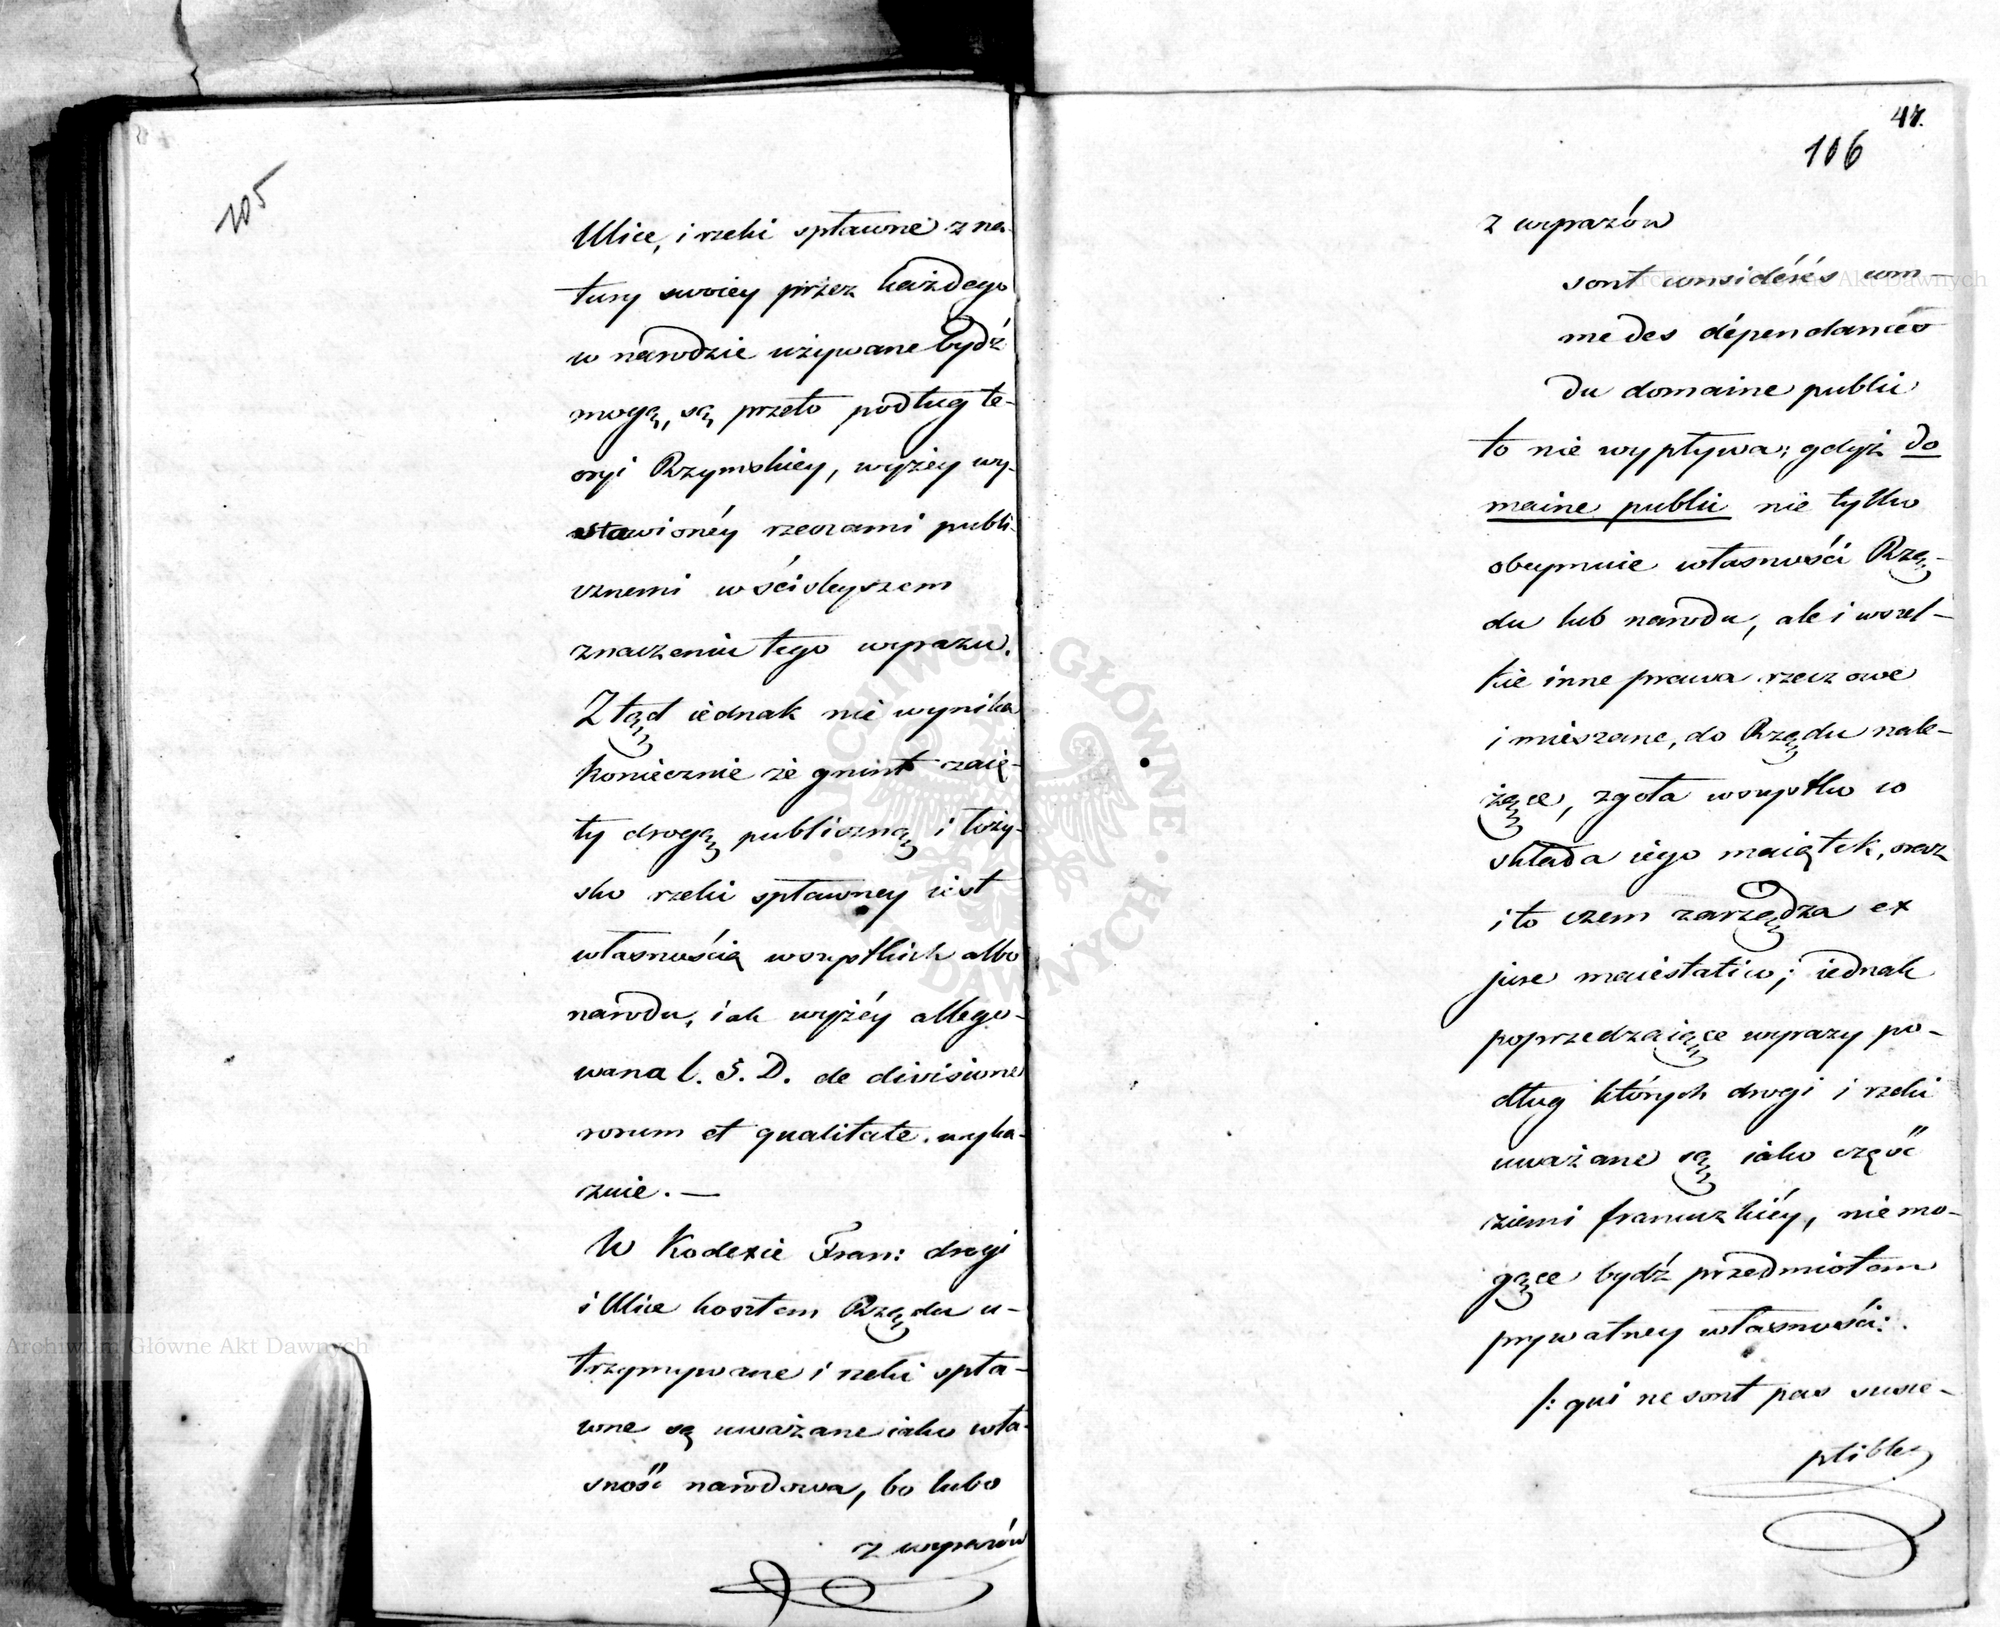 105
Ulice, i rzeki spławne z na-
tury swoiey przez każdego
w narodzie używane bydź
mogą, są przeto podług te-
oryi Rzymskiey, wyżey wy-
stawionéy rzeczami publi-
cznemi w ściśleyszem
znaczeniu tego wyrazu.
Ztąd iednak nie wynika
koniecznie że grunt zaię-
ty drogą publiczną i łoży-
sko rzeki spławney iest
własnością wszystkich albo
narodu, iak wyżéy allego-
wana l. 5. D. de divisione
rerum et qualitate. wyka-
zuie. —
W Kodexie Fran: drogi
i Ulice kosztem Rządu u-
trzymywane i rzeki spła-
wne są uważane iako wła-
sność narodowa, bo lubo
z wyrazów
47.
106
z wyrazów
sont considérés com-
me des dépendances
du domaine public
to nie wypływa; gdyż do
maine public nie tylko
obeymuie własności Rzą-
du lub narodu, ale i wszel-
kie inne prawa rzeczowe
i mieszane, do Rządu nale-
żące, zgoła wszystko co
składa iego maiątek, oraz
i to czem zarządza ex
jure maiestatico; iednak
poprzedzaiące wyrazy po-
dług których drogi i rzeki
uważane są iako część
ziemi francuzkiéy, nie mo-
gące bydź przedmiotem
prywatney własności:
/: qui ne sont pas susce-
ptibles
Archiwum Główne Akt Dawnych
Archiwum Główne Akt Dawnych
ARCHIWUM GŁÓWNE AKT DAWNYCH